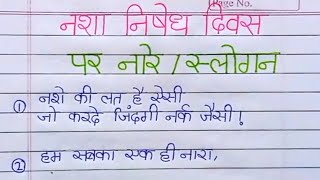 Page No.
नशा निषेध दिवस
पर नारे / स्लोगन
① नशे की लत है ऐसी
जो करदे जिंदगी नर्क जैसी!
② हम सबका एक ही नारा,